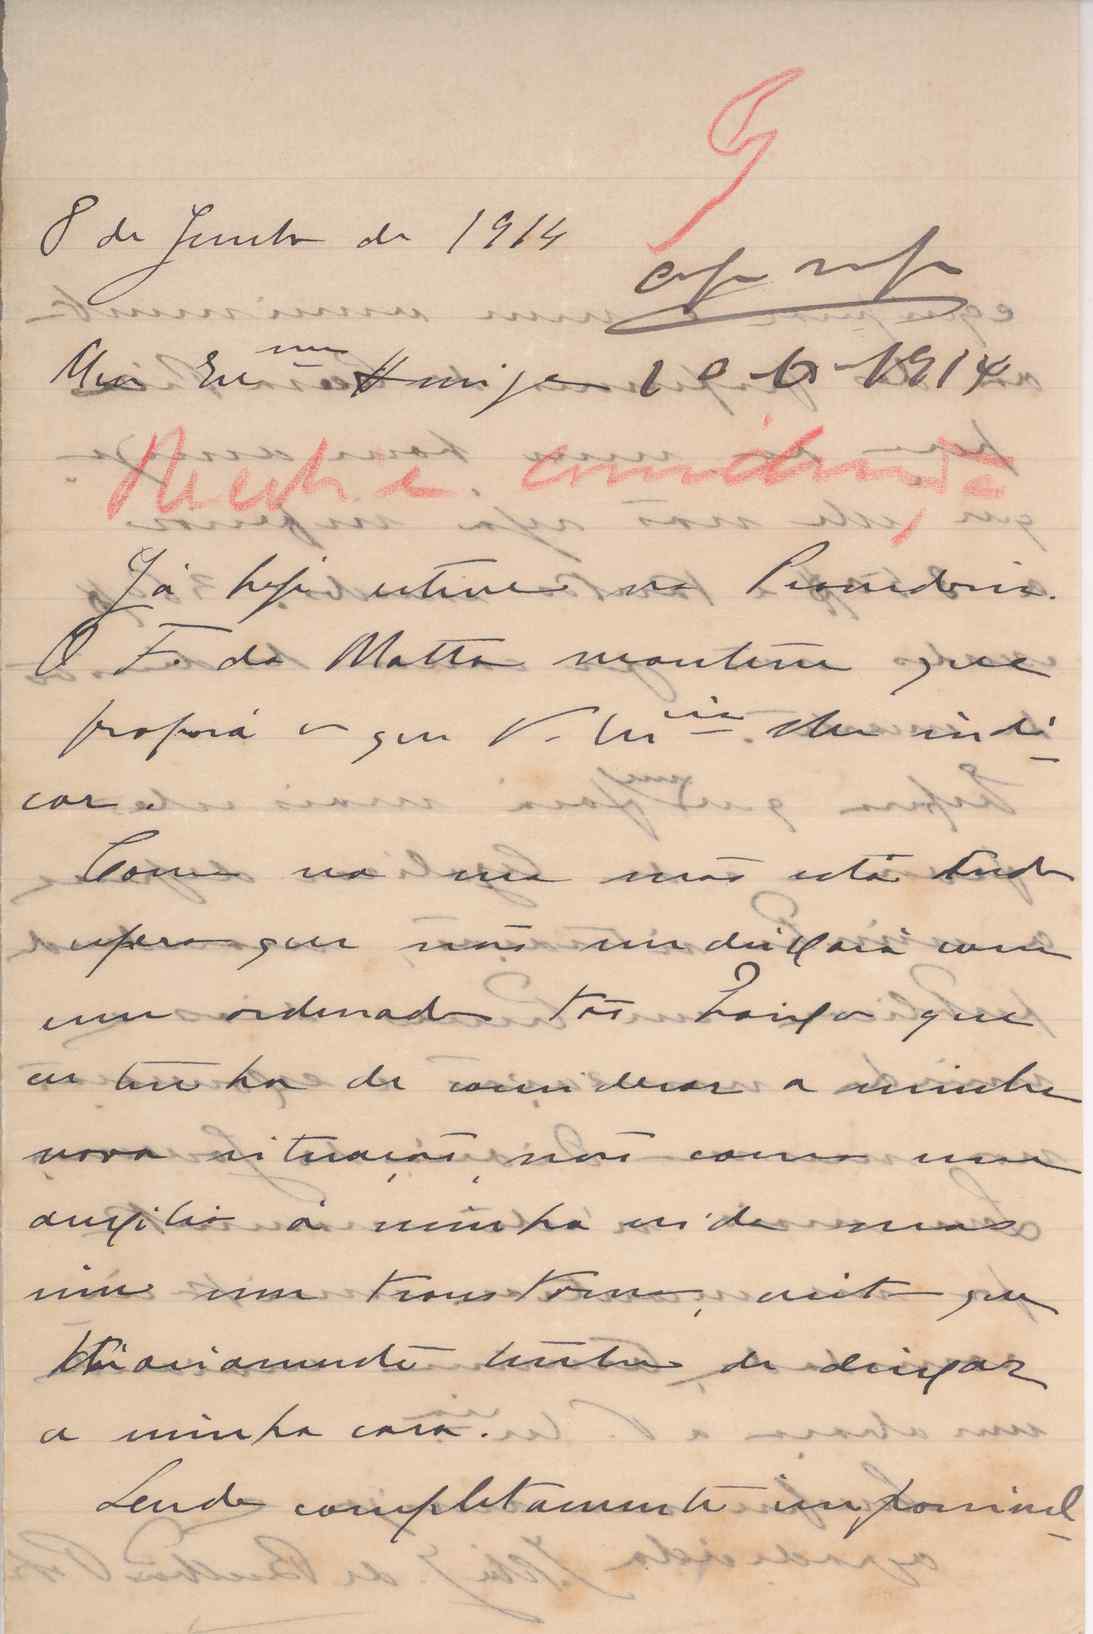 8 de Junho de 1914
Meu Exmo Amigo 10-6-1914
Já hoje estive na Provedoria.
O F. da Matta mantem que
proporá o que V. Excia lhe indi-
car.
Como na sua mão está tudo
espero que não me deixará com
um ordenado tão baixo que
eu tenha de considerar a minha
nova situação, não como um
auxilio á minha vida mas
sim um transtorno, visto que
diariamente tenho de deixar
a minha casa.
Sendo completamente impossivel